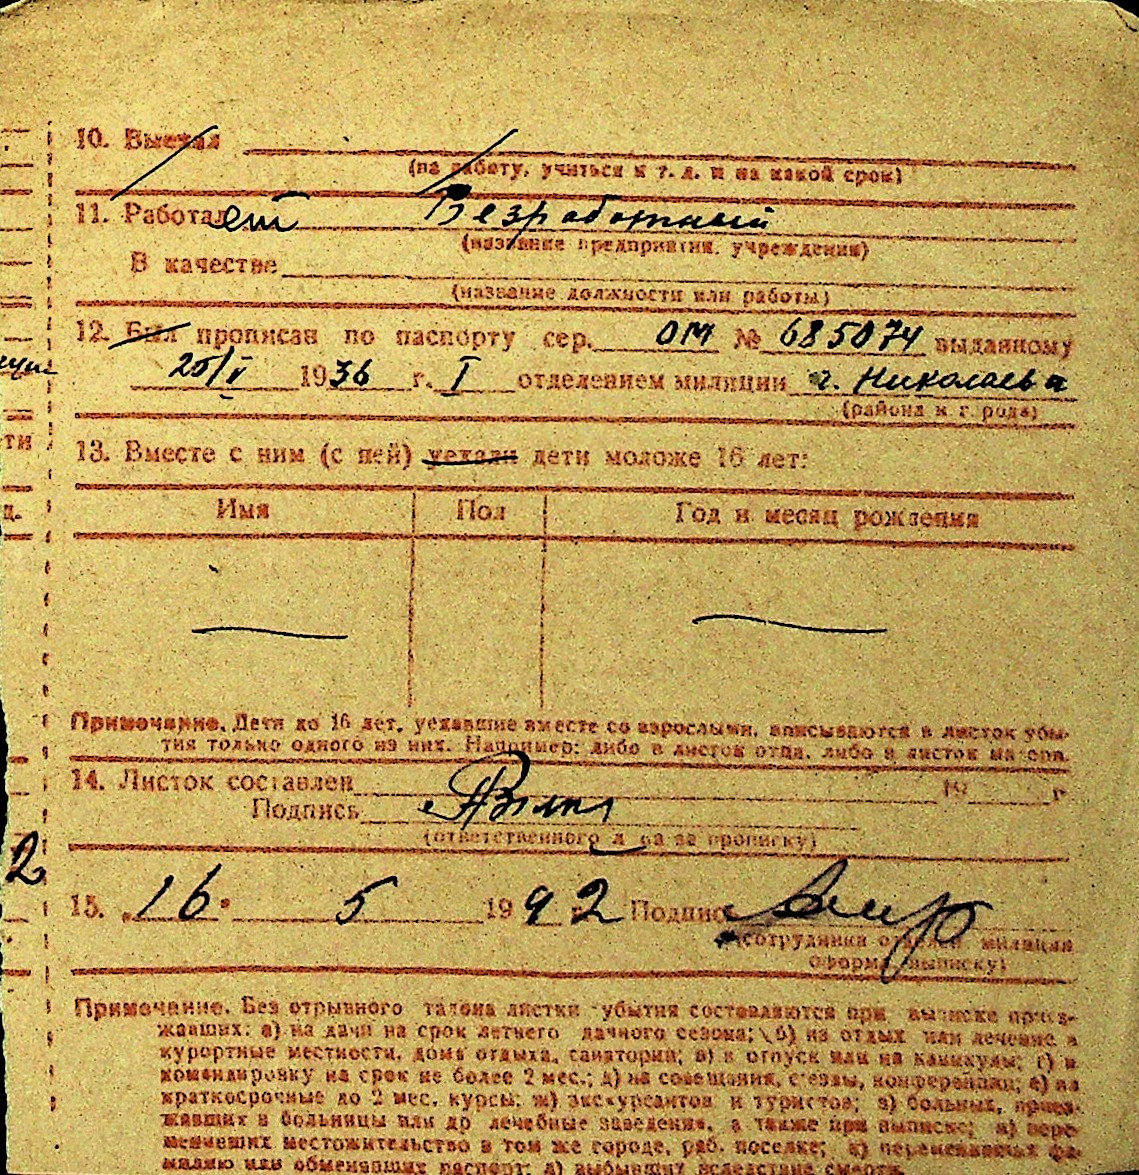 10. Выехал
(на работу, учиться и т. д. и на какой срок)
11. Работает Безработный
(название предприятия, учреждения)
В качестве
(название должности или работы)
12. Был прописан по паспорту сер. ОМ № 685074 выданному
25/V 1936 г. I отделением милиции г. Николаева
(района и города)
13. Вместе с ним (с ней) уехали дети моложе 16 лет:
Имя Пол Год и месяц рождения
ти
д.
Примечание. Дети до 16 лет, уехавшие вместе со взрослыми, вписываются в листок убы-
тия только одного из них. Например: либо в листок отца, либо в листок матери.
14. Листок составлен 19 г.
Подпись
(ответственного лица за прописку)
2
15. "16" 5 1942 г. Подпись
(сотрудника отделен. милиции
оформ. выписку)
Примечание. Без отрывного талона листки убытия составляются при выписке приез-
жавших: а) на дачи на срок летнего дачного сезона; б) на отдых или лечение в
курортные местности, дома отдыха, санатории; в) в отпуск или на каникулы; г) в
командировку на срок не более 2 мес.; д) на совещания, съезды, конференции; е) на
краткосрочные до 2 мес. курсы; ж) экскурсантов и туристов; з) больных, приез-
жавших в больницы или др лечебные заведения, а также при выписке; и) пере-
менивших местожительство в том же городе, раб. поселке; к) переменивших фа-
милию или обменявших паспорт; л) выбывших вследствие смерти.